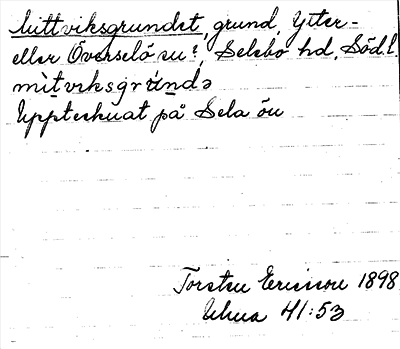 Mittviksgrundet, grund, Ytter-
eller Överselö sn?, Selebo hd, Södl.
mìtviksgrúndə
Upptecknat på Selaön
Torsten Ericsson 1898
Ulma 41:53